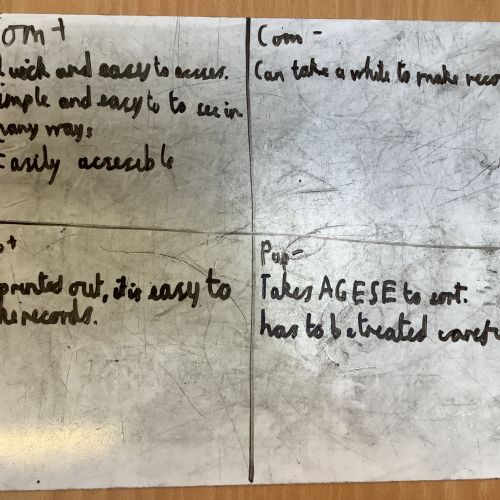 om +
uick and easy to acses.
imple and easy to to see in
many ways
Easily accesible
Com -
Can take a while to make reco
+
printed out, it is easy to
he records.
Pap -
Takes AGESE to sort.
has to be treated carefu